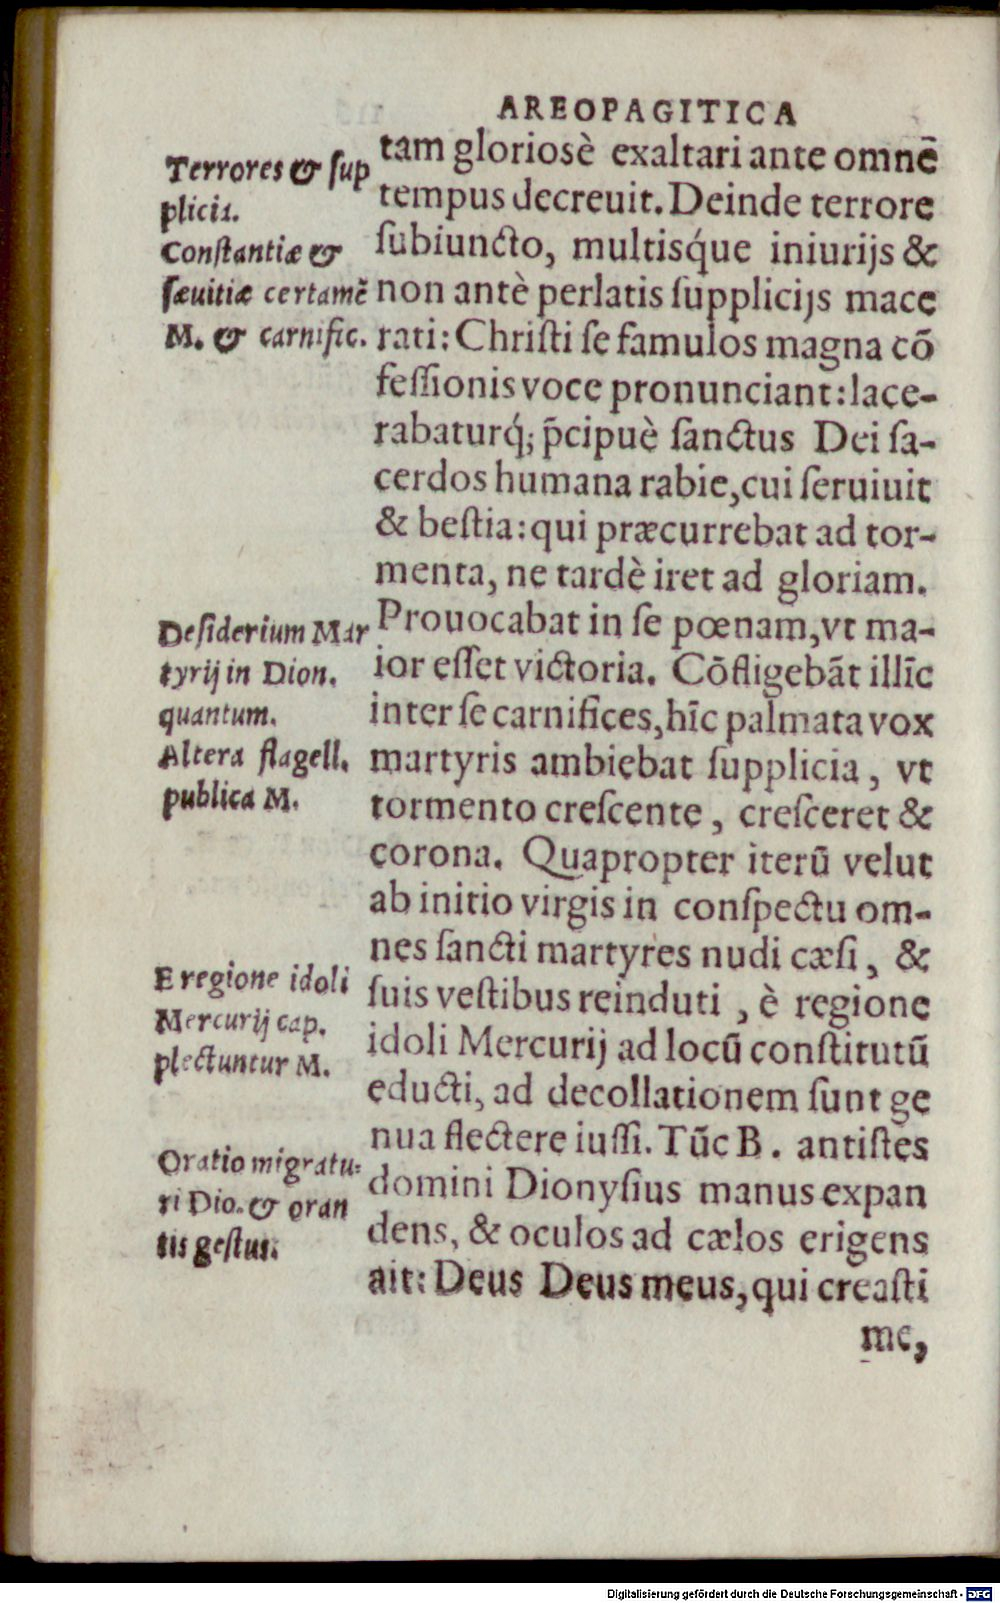 AREOPAGITICA
tam gloriosè exaltari ante omnē
tempus decreuit. Deinde terrore
ſubiuncto, multisq́ue iniurijs &
non antè perlatis ſupplicijs mace
rati: Chriſti ſe famulos magna cō
feſſionis voce pronunciant: lace-
rabaturq́; p̄cipuè ſanctus Dei ſa-
cerdos humana rabie, cui ſeruiuit
& beſtia: qui præcurrebat ad tor-
menta, ne tardè iret ad gloriam.
Prouocabat in ſe pœnam, vt ma-
ior eſſet victoria. Cōfligebāt illīc
inter ſe carnifices, hīc palmata vox
martyris ambiebat ſupplicia, vt
tormento creſcente, creſceret &
corona. Quapropter iterū velut
ab initio virgis in conſpectu om-
nes ſancti martyres nudi cæſi, &
ſuis veſtibus reinduti, è regione
idoli Mercurij ad locū conſtitutū
educti, ad decollationem ſunt ge
nua flectere iuſſi. Tūc B. antiſtes
domini Dionyſius manus expan
dens, & oculos ad cælos erigens
ait: Deus Deus meus, qui creaſti
me,
Terrores & ſup
plicia.
Conſtantiæ &
ſæuitiæ certamē
M. & carnific.
Deſiderium Mar
tyrij in Dion.
quantum.
Altera flagell.
publica M.
E regione idoli
Mercurij cap.
plectuntur M.
Oratio migratu-
ri Dio. & oran
tis geſtus.
Digitalisierung gefördert durch die Deutsche Forschungsgemeinschaft - DFG